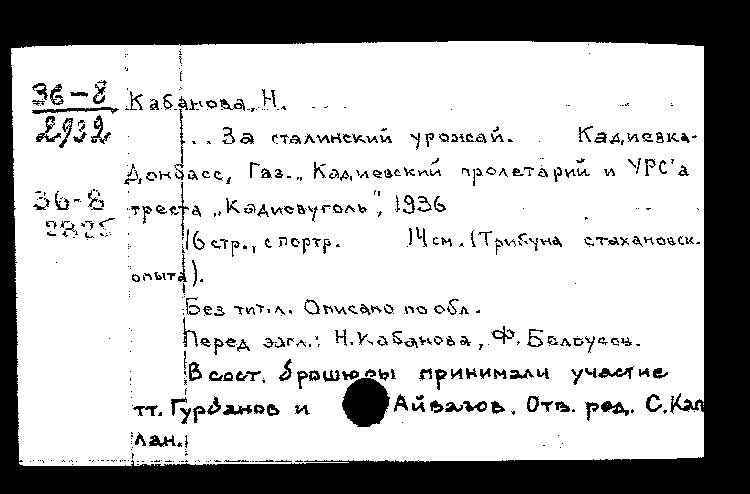 36-8
2932
Кабанова, Н.
... За сталинский урожай. Кадиевка-
Донбасс, Газ. „Кадиевский пролетарий и УРС'а
36-8
2825
треста „Кадиевуголь", 1936
16 стр., с портр. 14 см. (Трибуна стахановск.
опыта).
Без тит. л. Описано по обл.
Перед загл.: Н. Кабанова, Ф. Белоусов.
В сост. брошюры принимали участие
тт. Гурбанов и Айвазов. Отв. ред. С. Кап
лан.